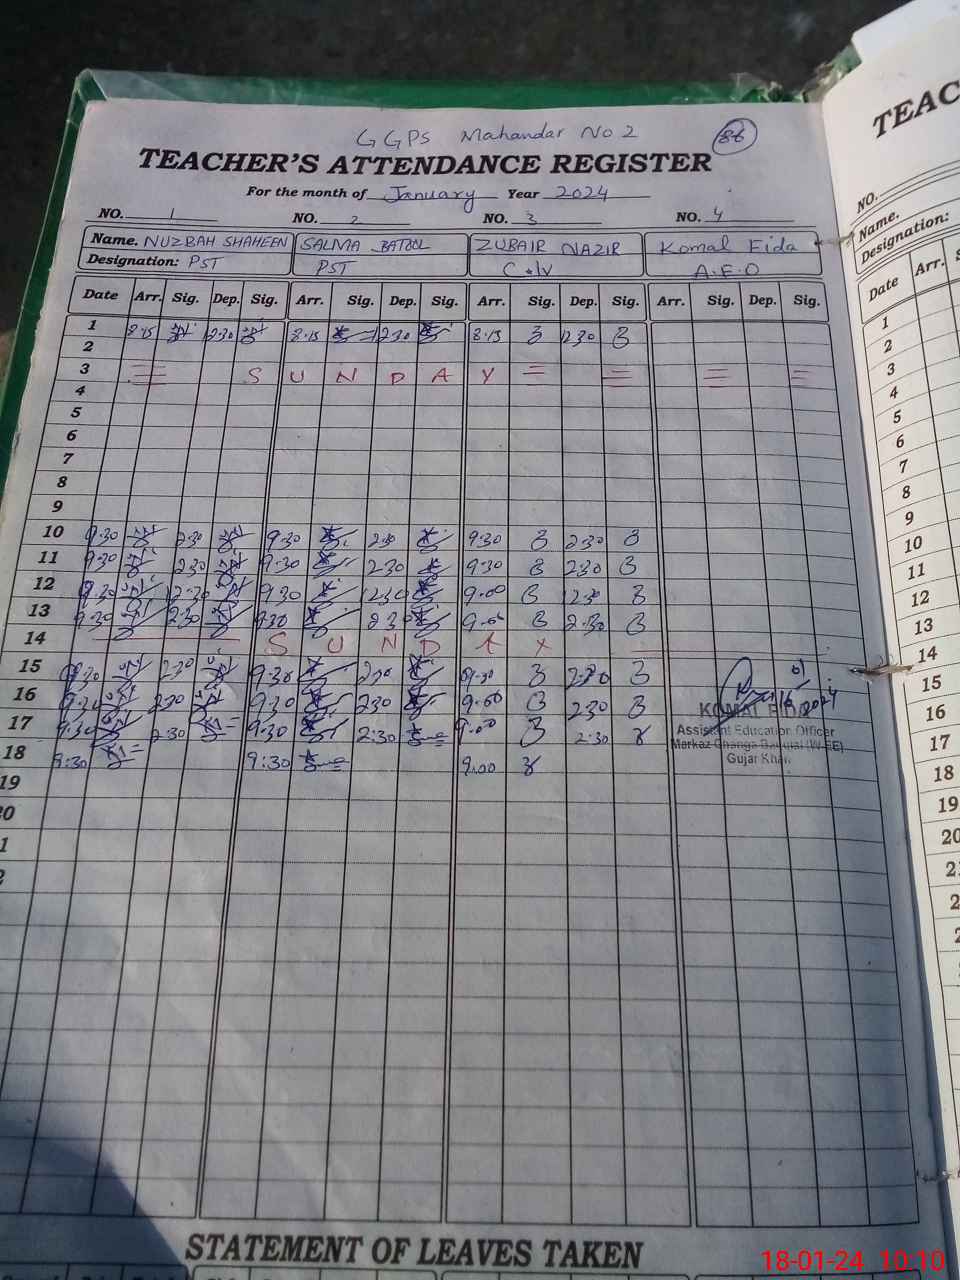 GGPS Mahandar No 2 86
TEACHER'S ATTENDANCE REGISTER
For the month of January Year 2024
NO. 1 NO. 2 NO. 3 NO. 4
Name. NUZBAH SHAHEEN SALMA BATOOL ZUBAIR NAZIR Komal Fida
Designation: PST PST C-IV A.E.O
Date Arr. Sig. Dep. Sig. Arr. Sig. Dep. Sig. Arr. Sig. Dep. Sig. Arr. Sig. Dep. Sig.
1 8.15 12.30 8.15 12.30 8.15 12.30
2
3 S U N D A Y
4
5
6
7
8
9
10 9.30 2.30 9.30 2.30 9.30 2.30
11 9.30 2.30 9.30 2.30 9.30 2.30
12 9.30 12.30 9.30 12.30 9.00 12.30
13 9.30 2.30 9.30 2.30 9.00 2.30
14 S U N D A Y
15 9.30 2.30 9.30 2.30 2.30
16 9.30 2.30 9.30 2.30 9.00 2.30
17 9.30 2.30 9.30 2:30 9.00 2:30
18 9:30 9:30 9.00
19
20
1
2
KOMAL FIDA
Assistant Education Officer
Gujar Khan
STATEMENT OF LEAVES TAKEN
TEAC
NO.
Name.
Designation:
Date Arr. S
1
2
3
4
5
6
7
8
9
10
11
12
13
14
15
16
17
18
19
20
18-01-24 10:10